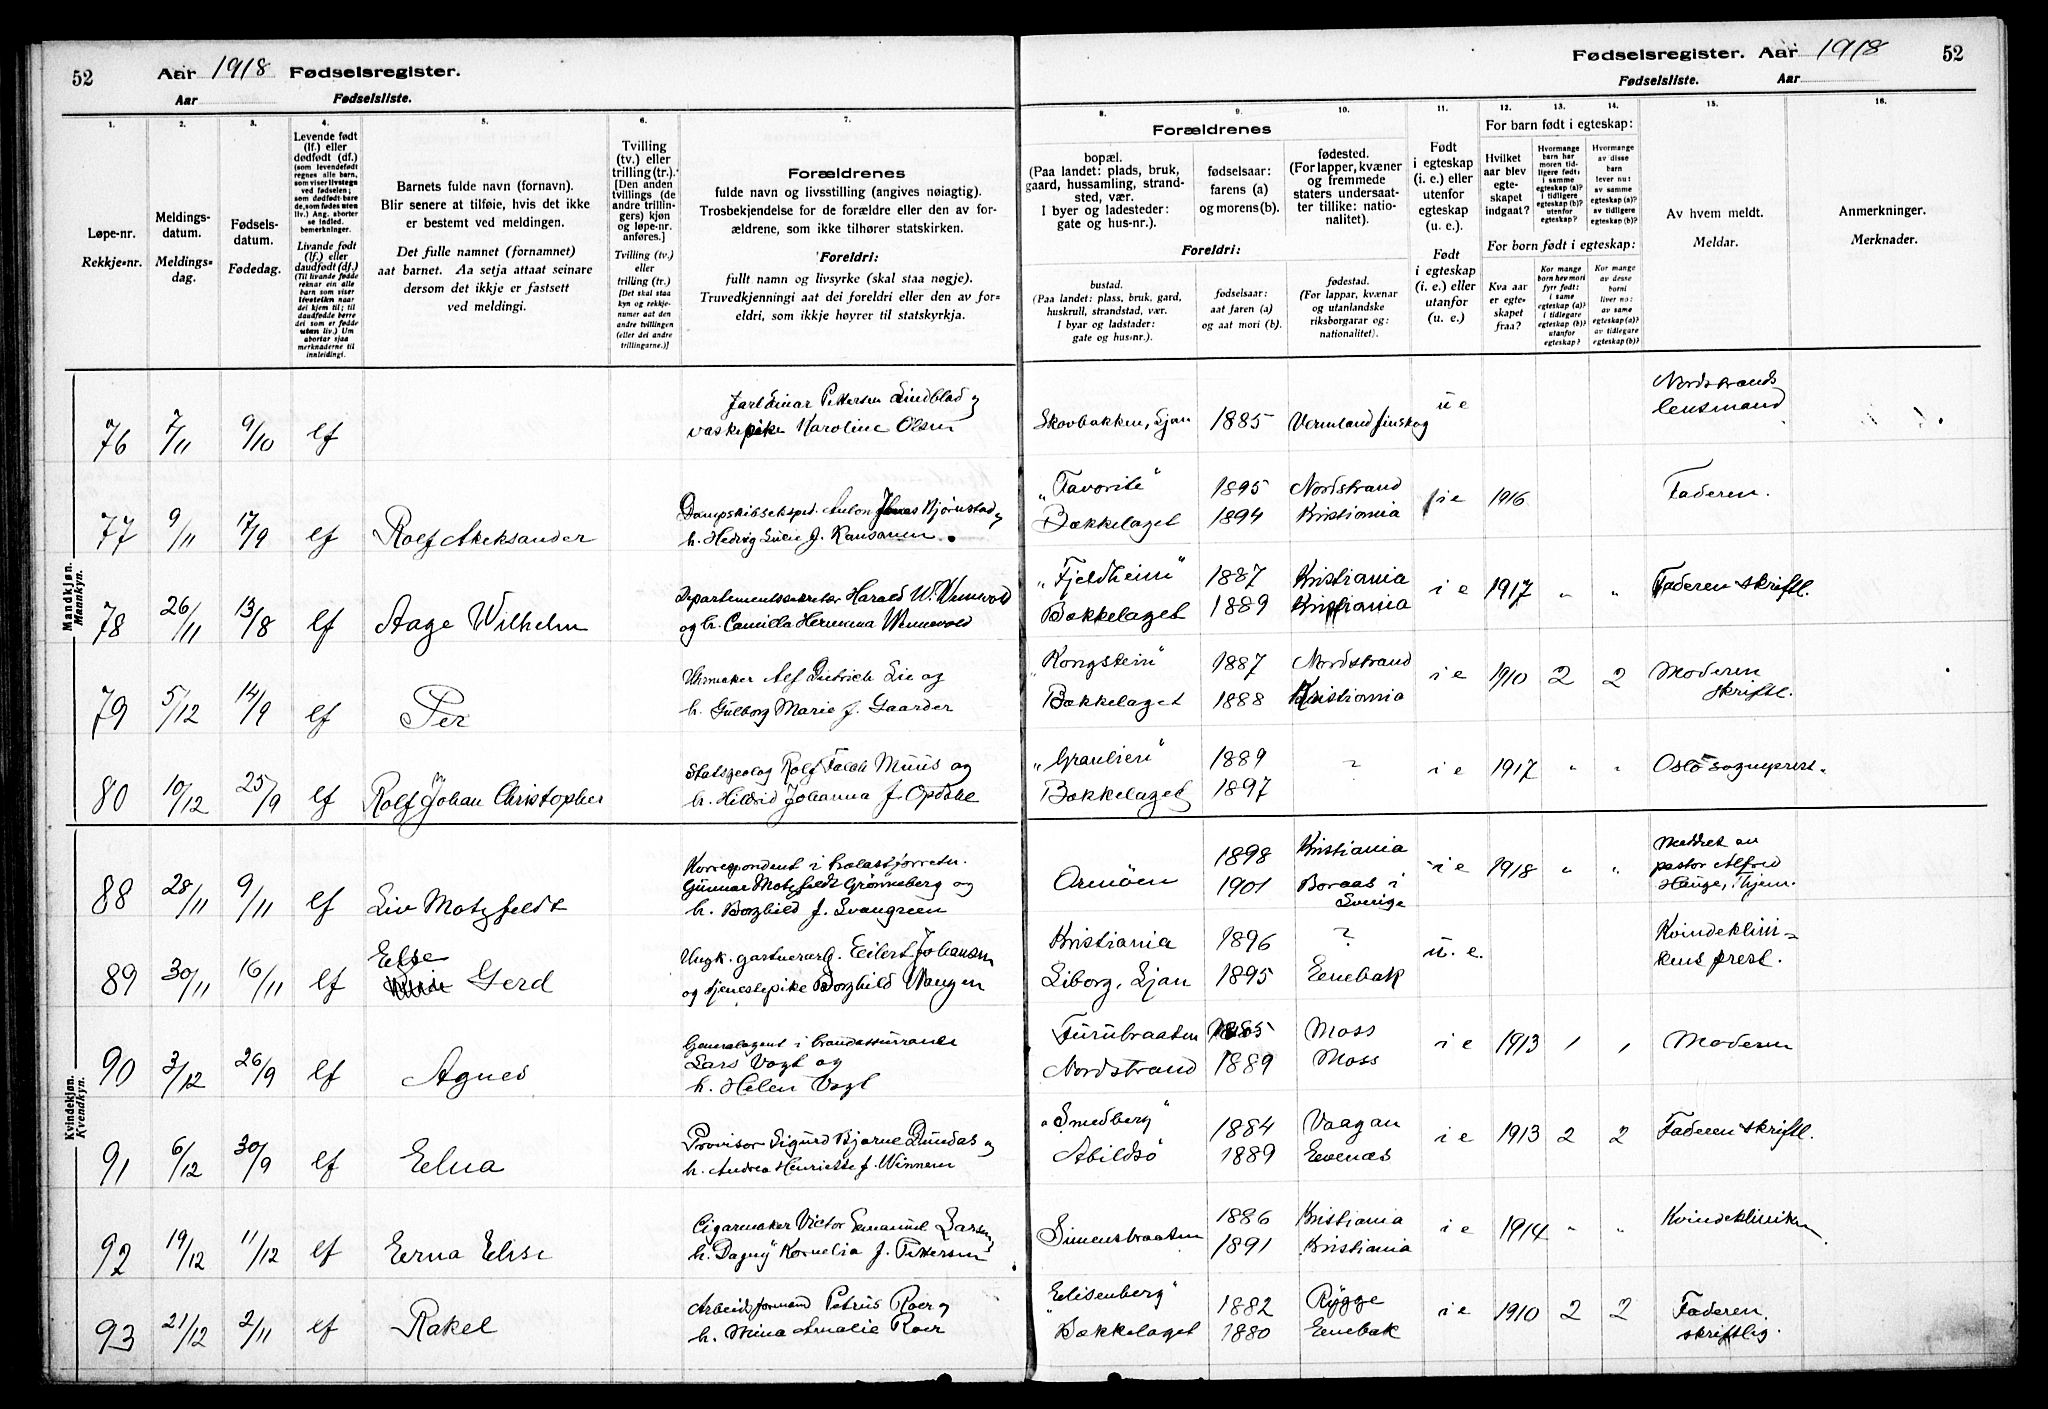 52 Aar 1918 Fødselsregister.
Aar Fødselsliste.
Fødselsregister. Aar 1918 52
Fødselsliste. Aar
1. 2. 3. 4. 5. 6. 7.
8. 9. 10. 11. 12. 13. 14. 15. 16.
Løpe-nr.
Rekkje-nr.
Meldings-
datum.
Meldings-
dag.
Fødsels-
datum.
Fødedag.
Levende født
(lf.) eller
dødfødt (df.)
Livande født
(lf.) eller
daudfødt (df.)
Barnets fulde navn (fornavn).
Blir senere at tilføie, hvis det ikke
er bestemt ved meldingen.
Det fulle namnet (fornamnet)
aat barnet. Aa setja attaat seinare
dersom det ikkje er fastsett
ved meldingi.
Tvilling
(tv.) eller
trilling (tr.).
[Den anden
tvillings (de
andre trillin-
gers) kjøn
og løpe-nr.
anføres.]
Tvilling (tv.)
eller
trilling (tr.)
[Det skal staa
kyn og rekkje-
numer aat den
andre tvillingen
(eller dei andre
trillingarne.)]
Forældrenes
fulde navn og livsstilling (angives nøiagtig).
Trosbekjendelse for de forældre eller den av for-
ældrene, som ikke tilhører statskirken.
Foreldri:
fullt namn og livsyrke (skal staa nøgje).
Truvedkjenningi aat dei foreldri eller den av for-
eldri, som ikkje høyrer til statskyrkja.
Forældrenes
bopæl.
(Paa landet: plads, bruk,
gaard, hussamling, strand-
sted, vær.
I byer og ladesteder:
gate og hus-nr.).
fødselsaar:
farens (a)
og morens (b).
fødested.
(For lapper, kvæner
og fremmede
staters undersaat-
ter tillike: natio-
nalitet).
Foreldri:
bustad.
(Paa landet: plass, bruk, gard,
huskrull, strandstad, vær.
I byar og ladstader:
gate og hus-nr.).
fødselsaar:
aat faren (a)
og aat mori (b).
fødestad.
(For lappar, kvænar
og utanlandske
riksborgarar og:
nationalitet).
Født
i egteskap
(i. e.) eller
utenfor
egteskap
(u. e.).
Født
i egteskap
(i. e.) eller
utanfor
(u. e.)
For barn født i egteskap:
Hvilket
aar blev
egte-
skapet
indgaat?
Hvormange
barn har
moren tid-
ligere født:
i samme
egteskap (a)?
i tidligere
egteskap (b)?
utenfor
egteskap?
Hvormange
av disse
barn
lever nu:
av samme
egteskap (a)?
av tidligere
egteskap (b)?
For born født i egteskap:
Kva aar
er egte-
skapet
fraa?
Kor mange
born hev mori
fyrr født:
i same
egteskap (a)?
i tidlegare
egteskap (b)?
utanfor
egteskap?
Kor mange
av desse
borni
liver no:
av same
egteskap (a)?
av tidlegare
egteskap (b)?
Av hvem meldt.
Meldar.
Anmerkninger.
Merknader.
Mandkjøn.
Mannkyn.
76 7/11 9/10 lf
Karoline Olsen
Skovbakken, Ljan 1885 Vermland finskog u e
Nordstrands
lensmand
77 9/11 17/9 lf Rolf Aleksander
"Favorite" 1895 Nordstrand i e 1916 Faderen.
Bækkelaget 1894 Kristiania
78 26/11 13/8 lf Aage Wilhelm
Departementssekretær Harald W. Wennevold
og h. Camilla Hermina Wennevold
"Fjeldheim" 1887 Kristiania i e 1917 " " Faderen skriftl.
Bækkelaget 1889 Kristiania
79 5/12 14/9 lf Per
Urmaker Alf Dietrich Lie og
h. Gulborg Marie f. Gaarder
"Kongstein" 1887 Nordstrand i e 1910 2 2 Moderen
Bækkelaget 1888 Kristiania skriftl.
80 10/12 25/9 lf Rolf Johan Christopher
Statsgeolog Rolf Falck Muus og
h. Hildrid Johanna f. Opdahl
"Granlien" 1889 ? i e 1917 " " Oslo sogneprest.
Bækkelaget 1897
Kvindekjøn.
Kvendkyn.
88 28/11 9/11 lf Liv Motzfeldt
Korrespondent i
Gunnar Motzfeldt Grønneberg og
h. Borghild f. Svangreen
Ormöen 1898 Kristiania i e 1918 " " Meddelt av
1901 Boraas i pastor Alfred
Sverige Hauge, i hjem.
89 30/11 16/11 lf Else
Gerd
Ungk. gartnerarb. Eilert Johansen
og tjenestepike Borghild Wangen
Kristiania 1896 ? u. e. Kvindeklini-
Liborg, Ljan 1895 Enebak kens prest.
90 3/12 26/9 lf Agnes
Generalagent i brandassurance
Lars Vogt og
h. Helen Vogt
Furubraaten 1885 Moss i e 1913 1 1 Moderen
Nordstrand 1889 Moss
91 6/12 30/9 lf Edna
Provisor Sigurd Bjarne Dundas og
h. Andrea Henriette f. Winnem
"Smedberg" 1884 Vaagan i e 1913 2 2 Faderen skriftl.
Abildsö 1889 Evenæs
92 19/12 11/12 lf Erna Elise
Cigarmaker Victor Emanuel Larsen
h. Dagny Kornelia f. Pettersen
Simensbraaten 1886 Kristiania i e 1914 " " Kvindekliniken
1891 Kristiania
93 21/12 2/11 lf Rakel
Arbeidsformand Petrus Roer og
h. Mina Amalie Roer
"Elisenberg" 1882 Rygge i e 1910 2 2 Faderen
Bækkelaget 1880 Enebak skriftlig.